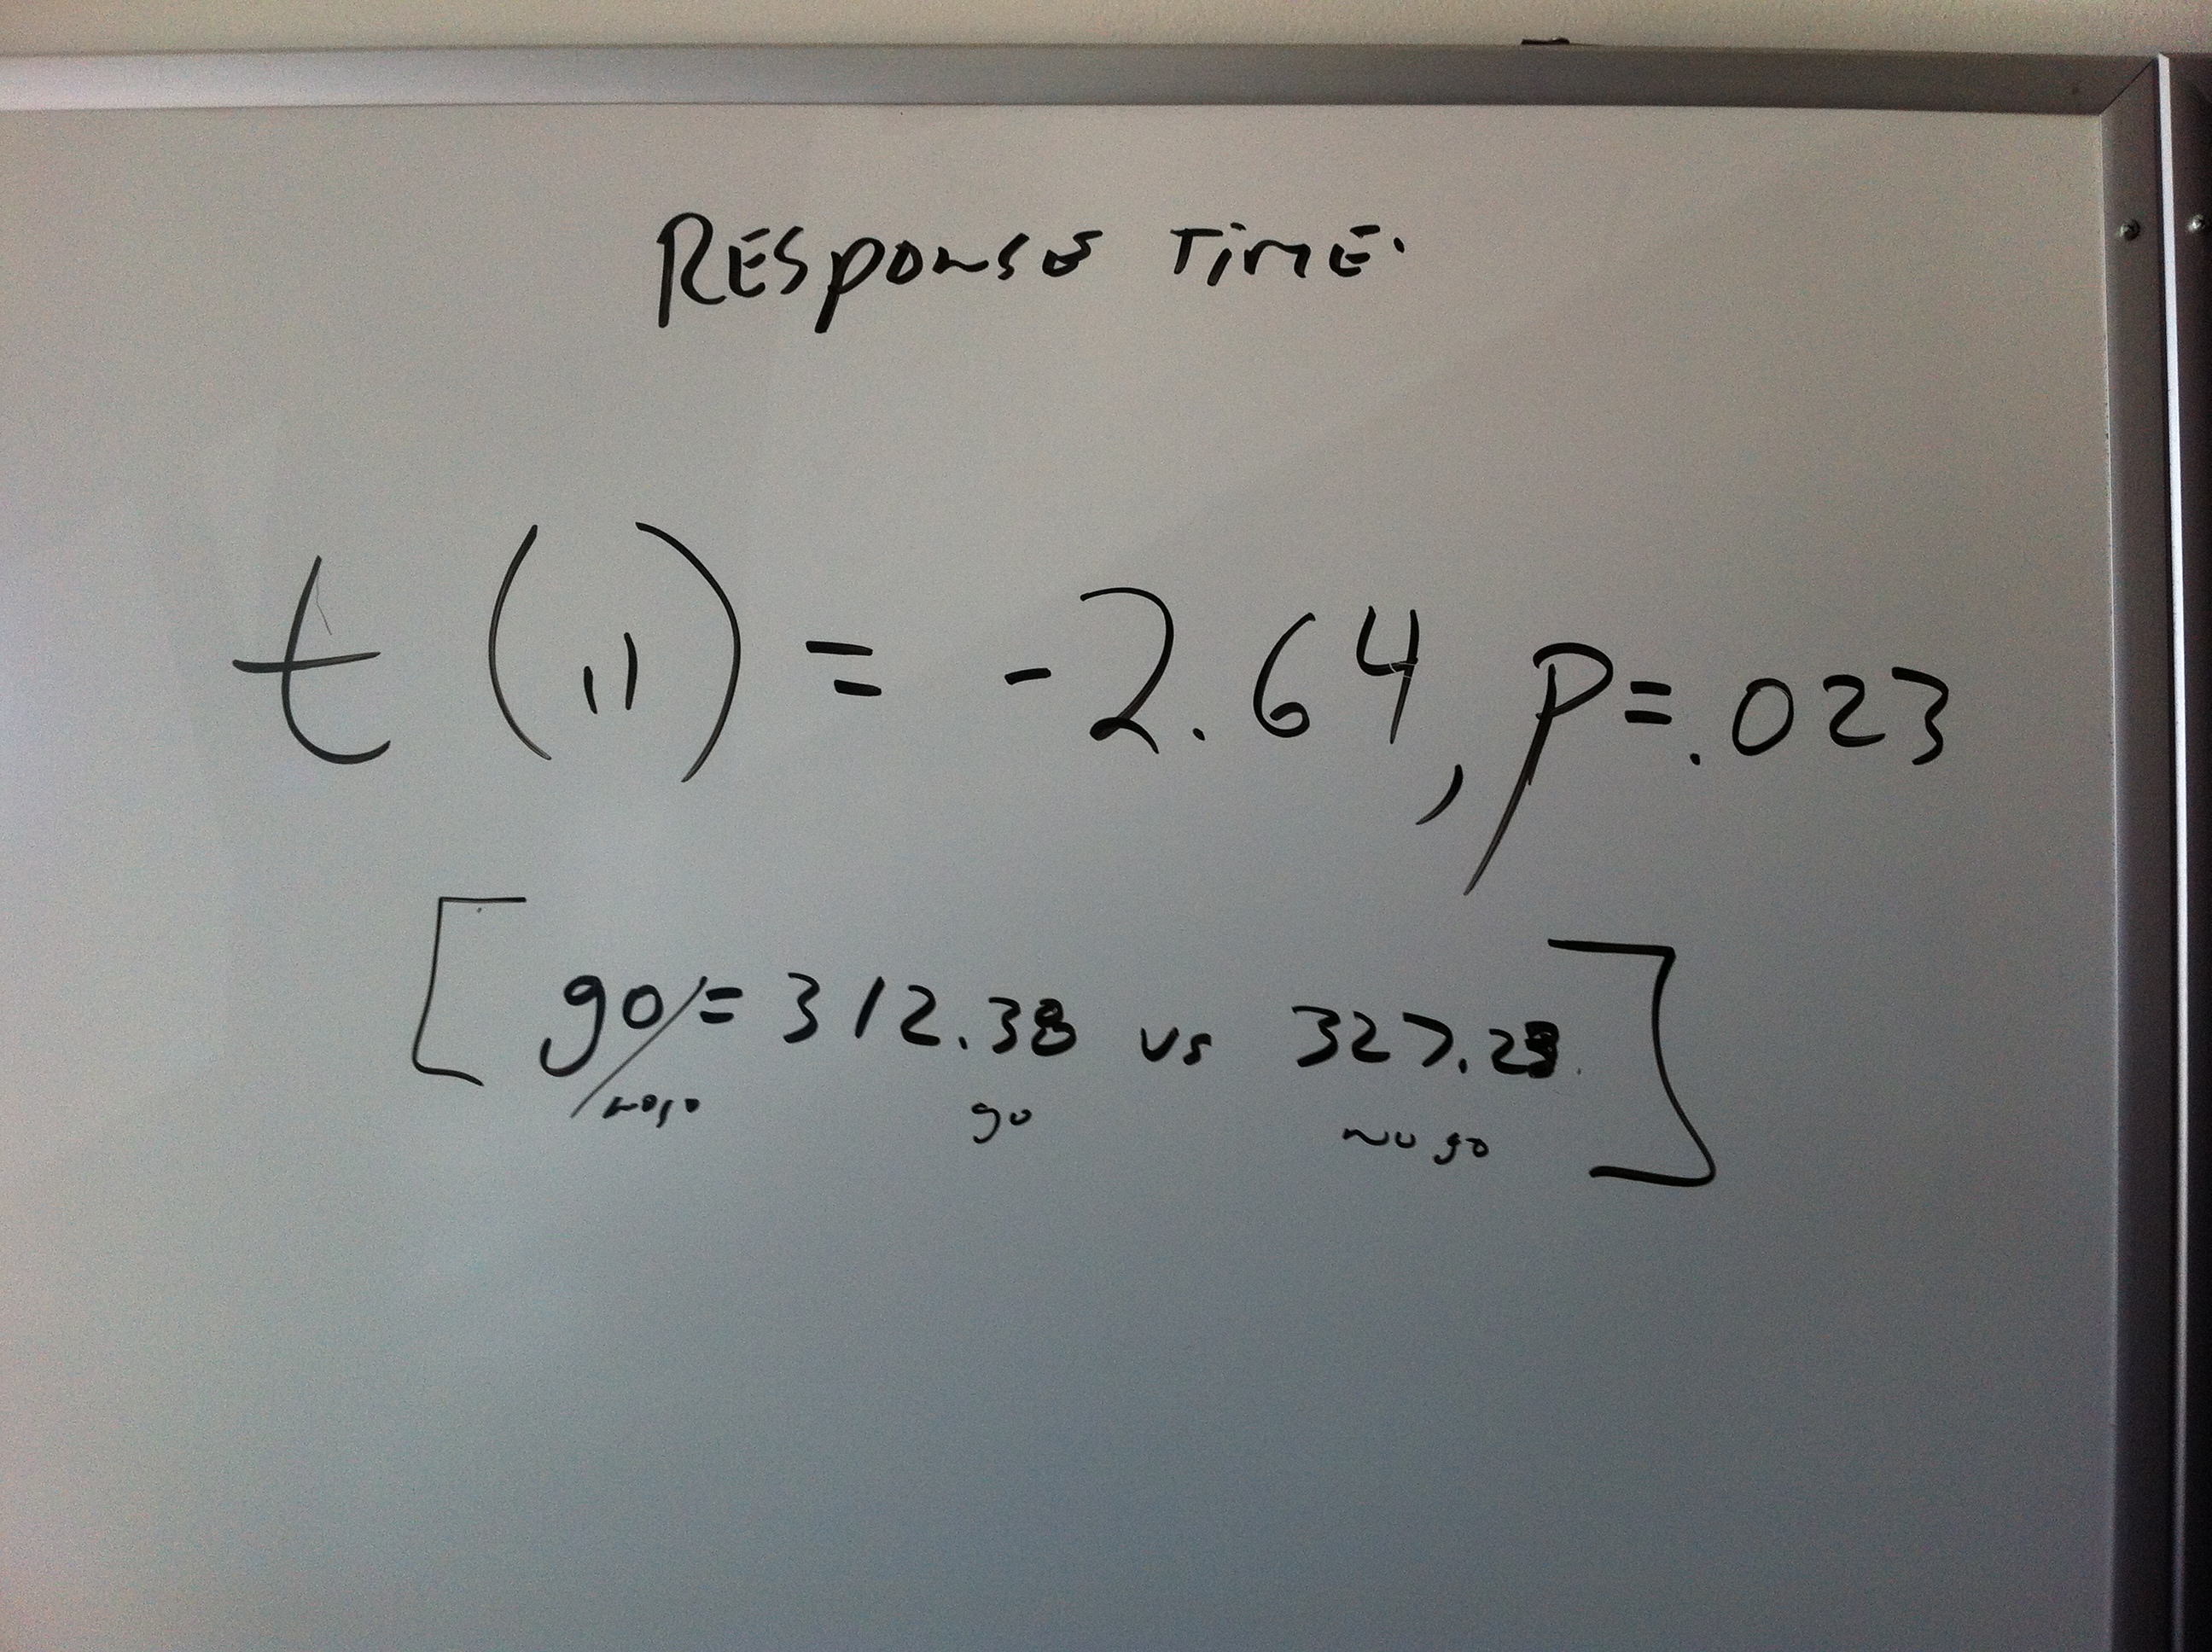 RESPONSE TIME:
t (11) = -2.64, p=.023
[ go/= 312.38 vs 327.28 ]
nogo go no go